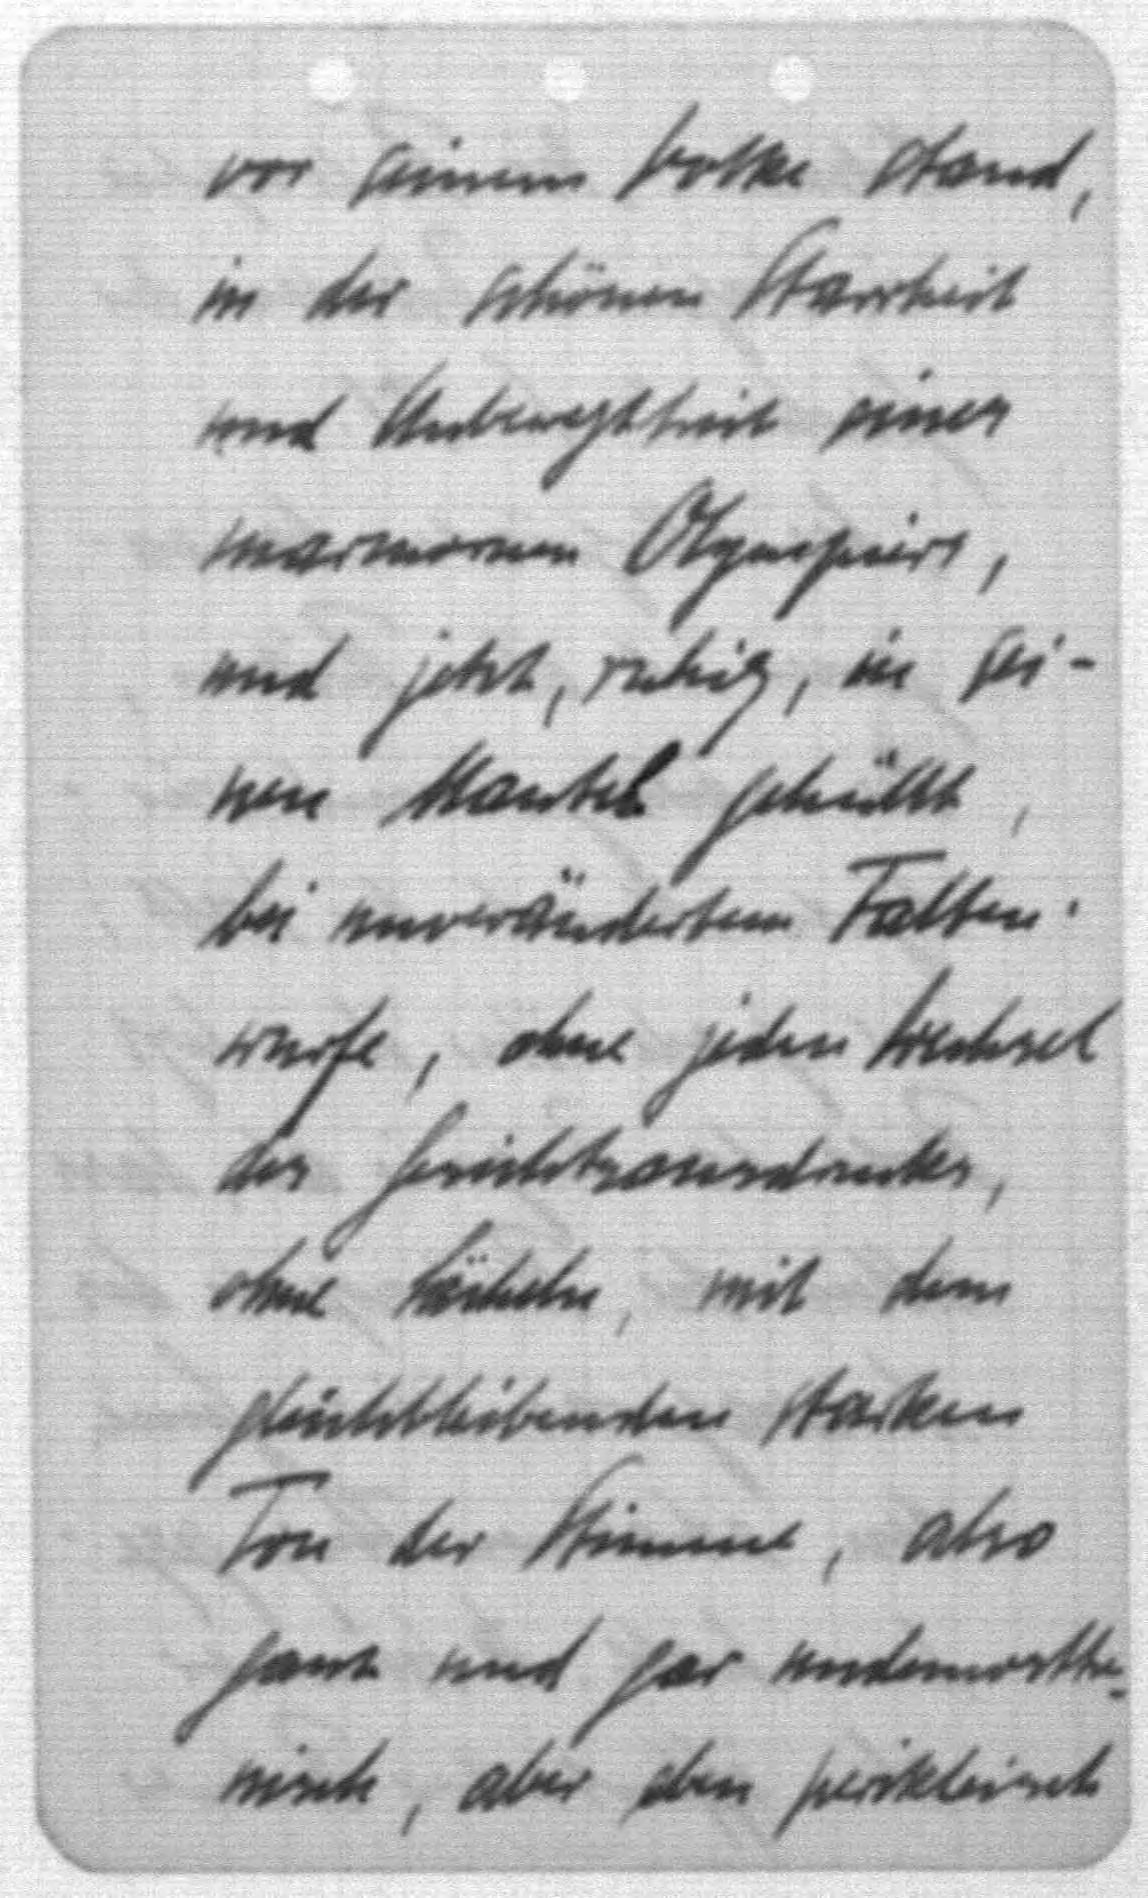 vor seinem Volke stand,
in der schönen Starrheit
und Unbewegtheit eines
marmornen Olympiers,
und jetzt, ruhig, in sei-
nen Mantel gehüllt,
bei unverändertem Falten-
wurfe, ohne jeden Wechsel
des Gesichtsausdruckes,
ohne Lächeln, mit dem
gleichbleibenden starken
Ton der Stimme, also
ganz und gar undemosthe-
nisch, aber eben perikleisch